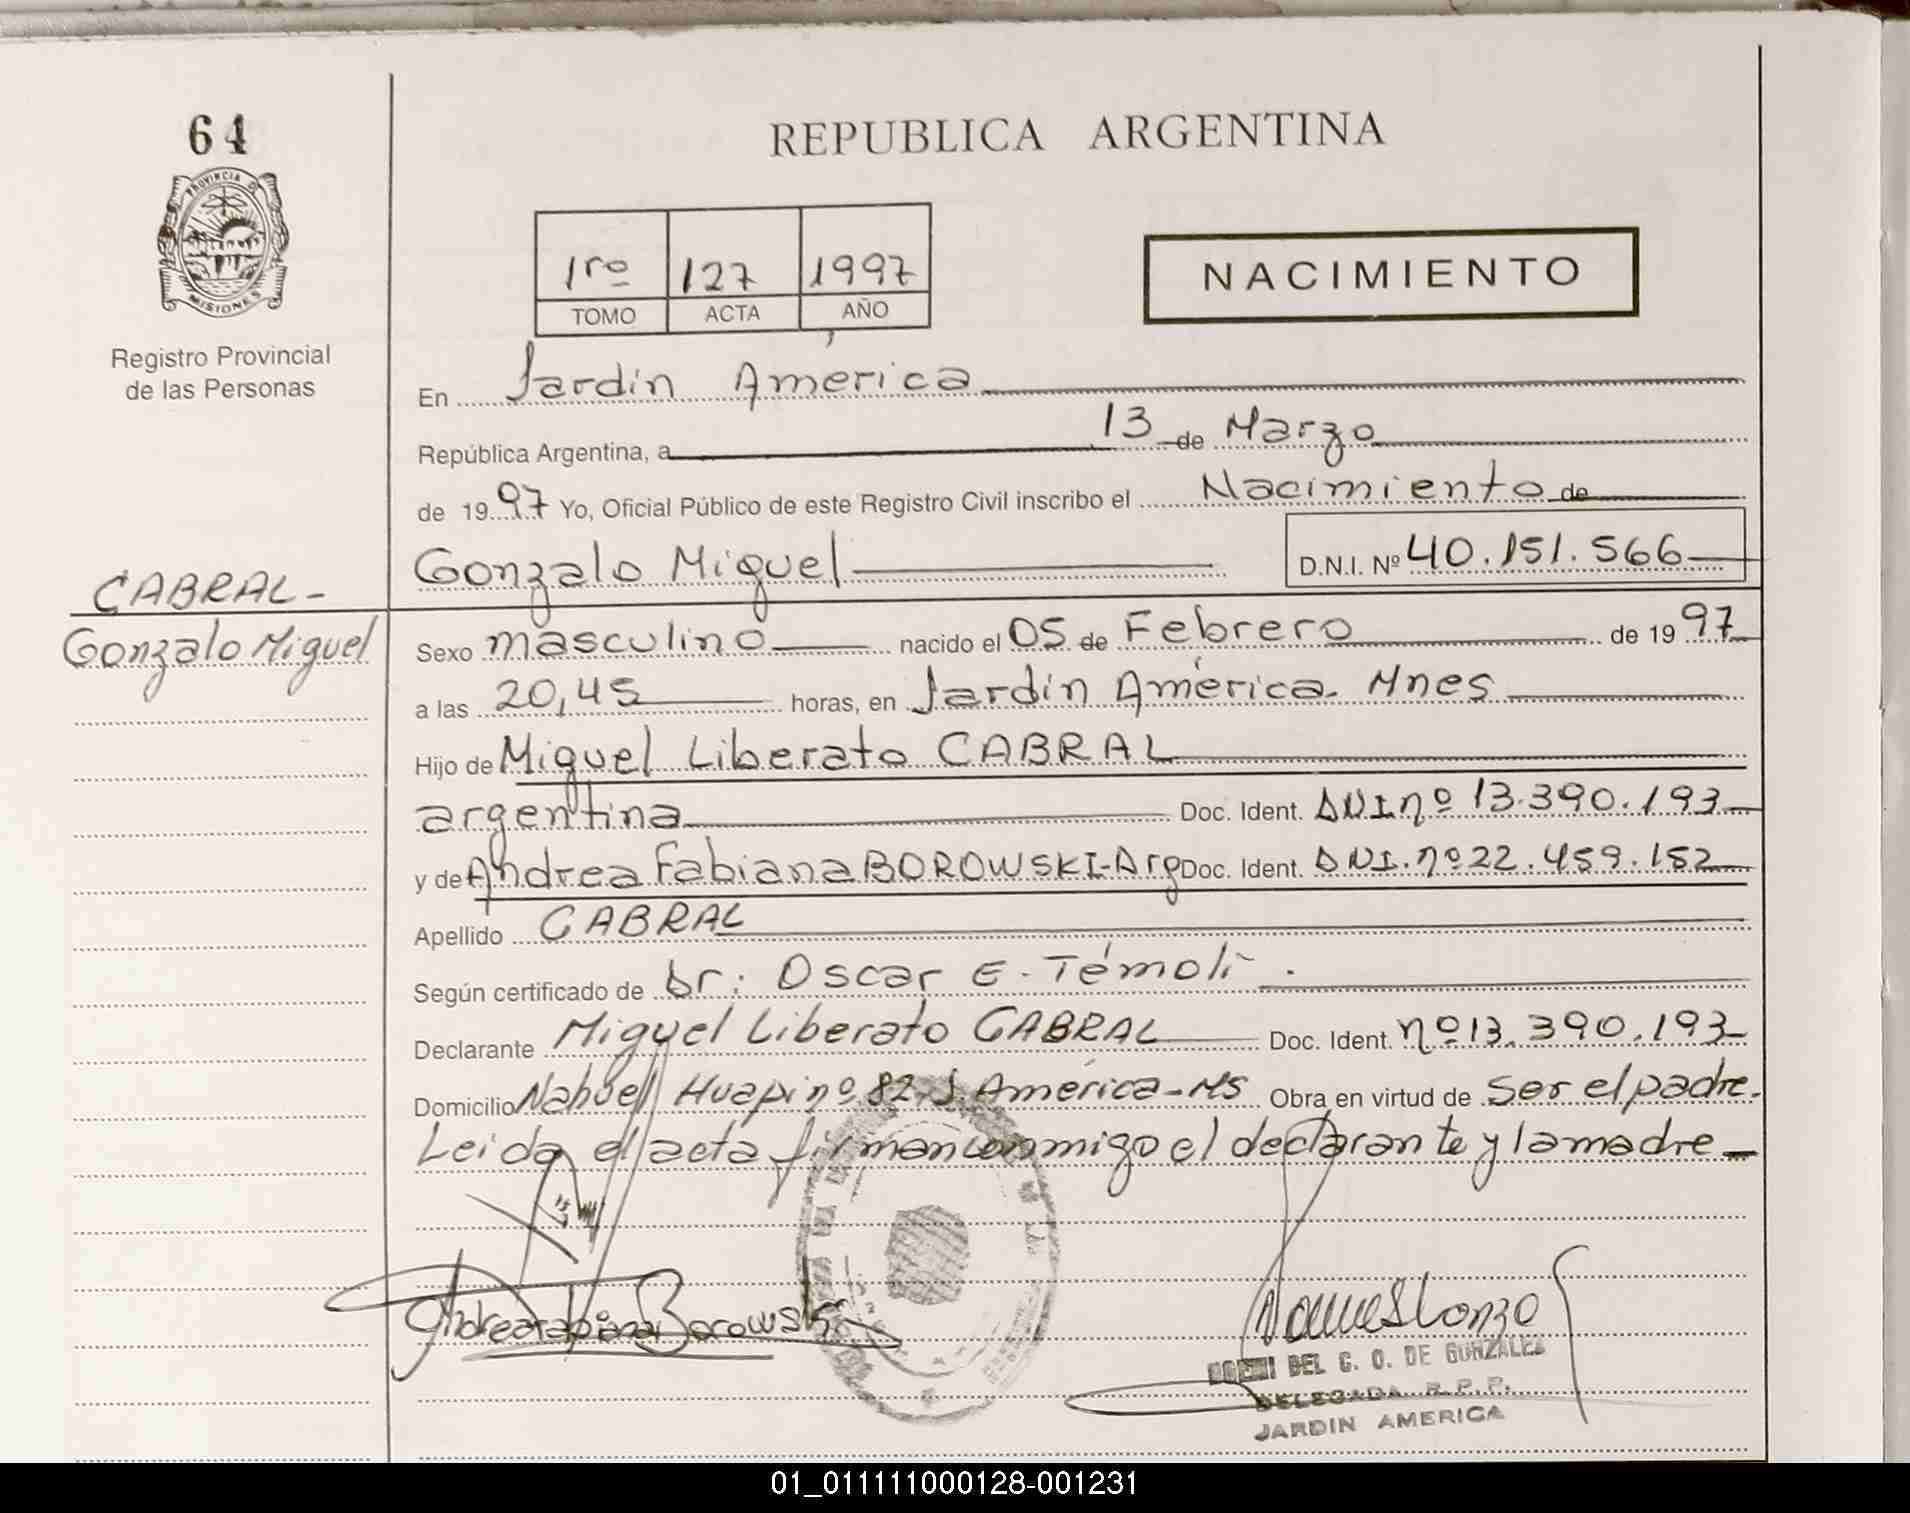 64
REPUBLICA ARGENTINA
PROVINCIA DE
MISIONES
Registro Provincial
de las Personas
1ro 127 1997
TOMO ACTA AÑO
NACIMIENTO
En Jardín América
República Argentina, a 13 de Marzo
de 1997 Yo, Oficial Público de este Registro Civil inscribo el Nacimiento de
Gonzalo Miguel D.N.I. Nº 40.151.566
CABRAL -
Gonzalo Miguel
Sexo masculino nacido el 05 de Febrero de 1997
a las 20,45 horas, en Jardín América. Mnes
Hijo de Miguel Liberato CABRAL
argentina Doc. Ident. DNI nº 13.390.193
y de Andrea Fabiana BOROWSKI-Arg Doc. Ident. DNI. nº 22.459.152
Apellido CABRAL
Según certificado de Dr: Oscar E. Témoli.
Declarante Miguel Liberato CABRAL Doc. Ident. nº 13.390.193
Domicilio Nahuel Huapi nº 82, J. América-Ms Obra en virtud de Ser el padre.
Leida el acta firman conmigo el declarante y la madre
Andrea Fabiana Borowski
DEL C. O. DE GONZALEZ
DELEGADA R.P.P.
JARDIN AMERICA
01_011111000128-001231